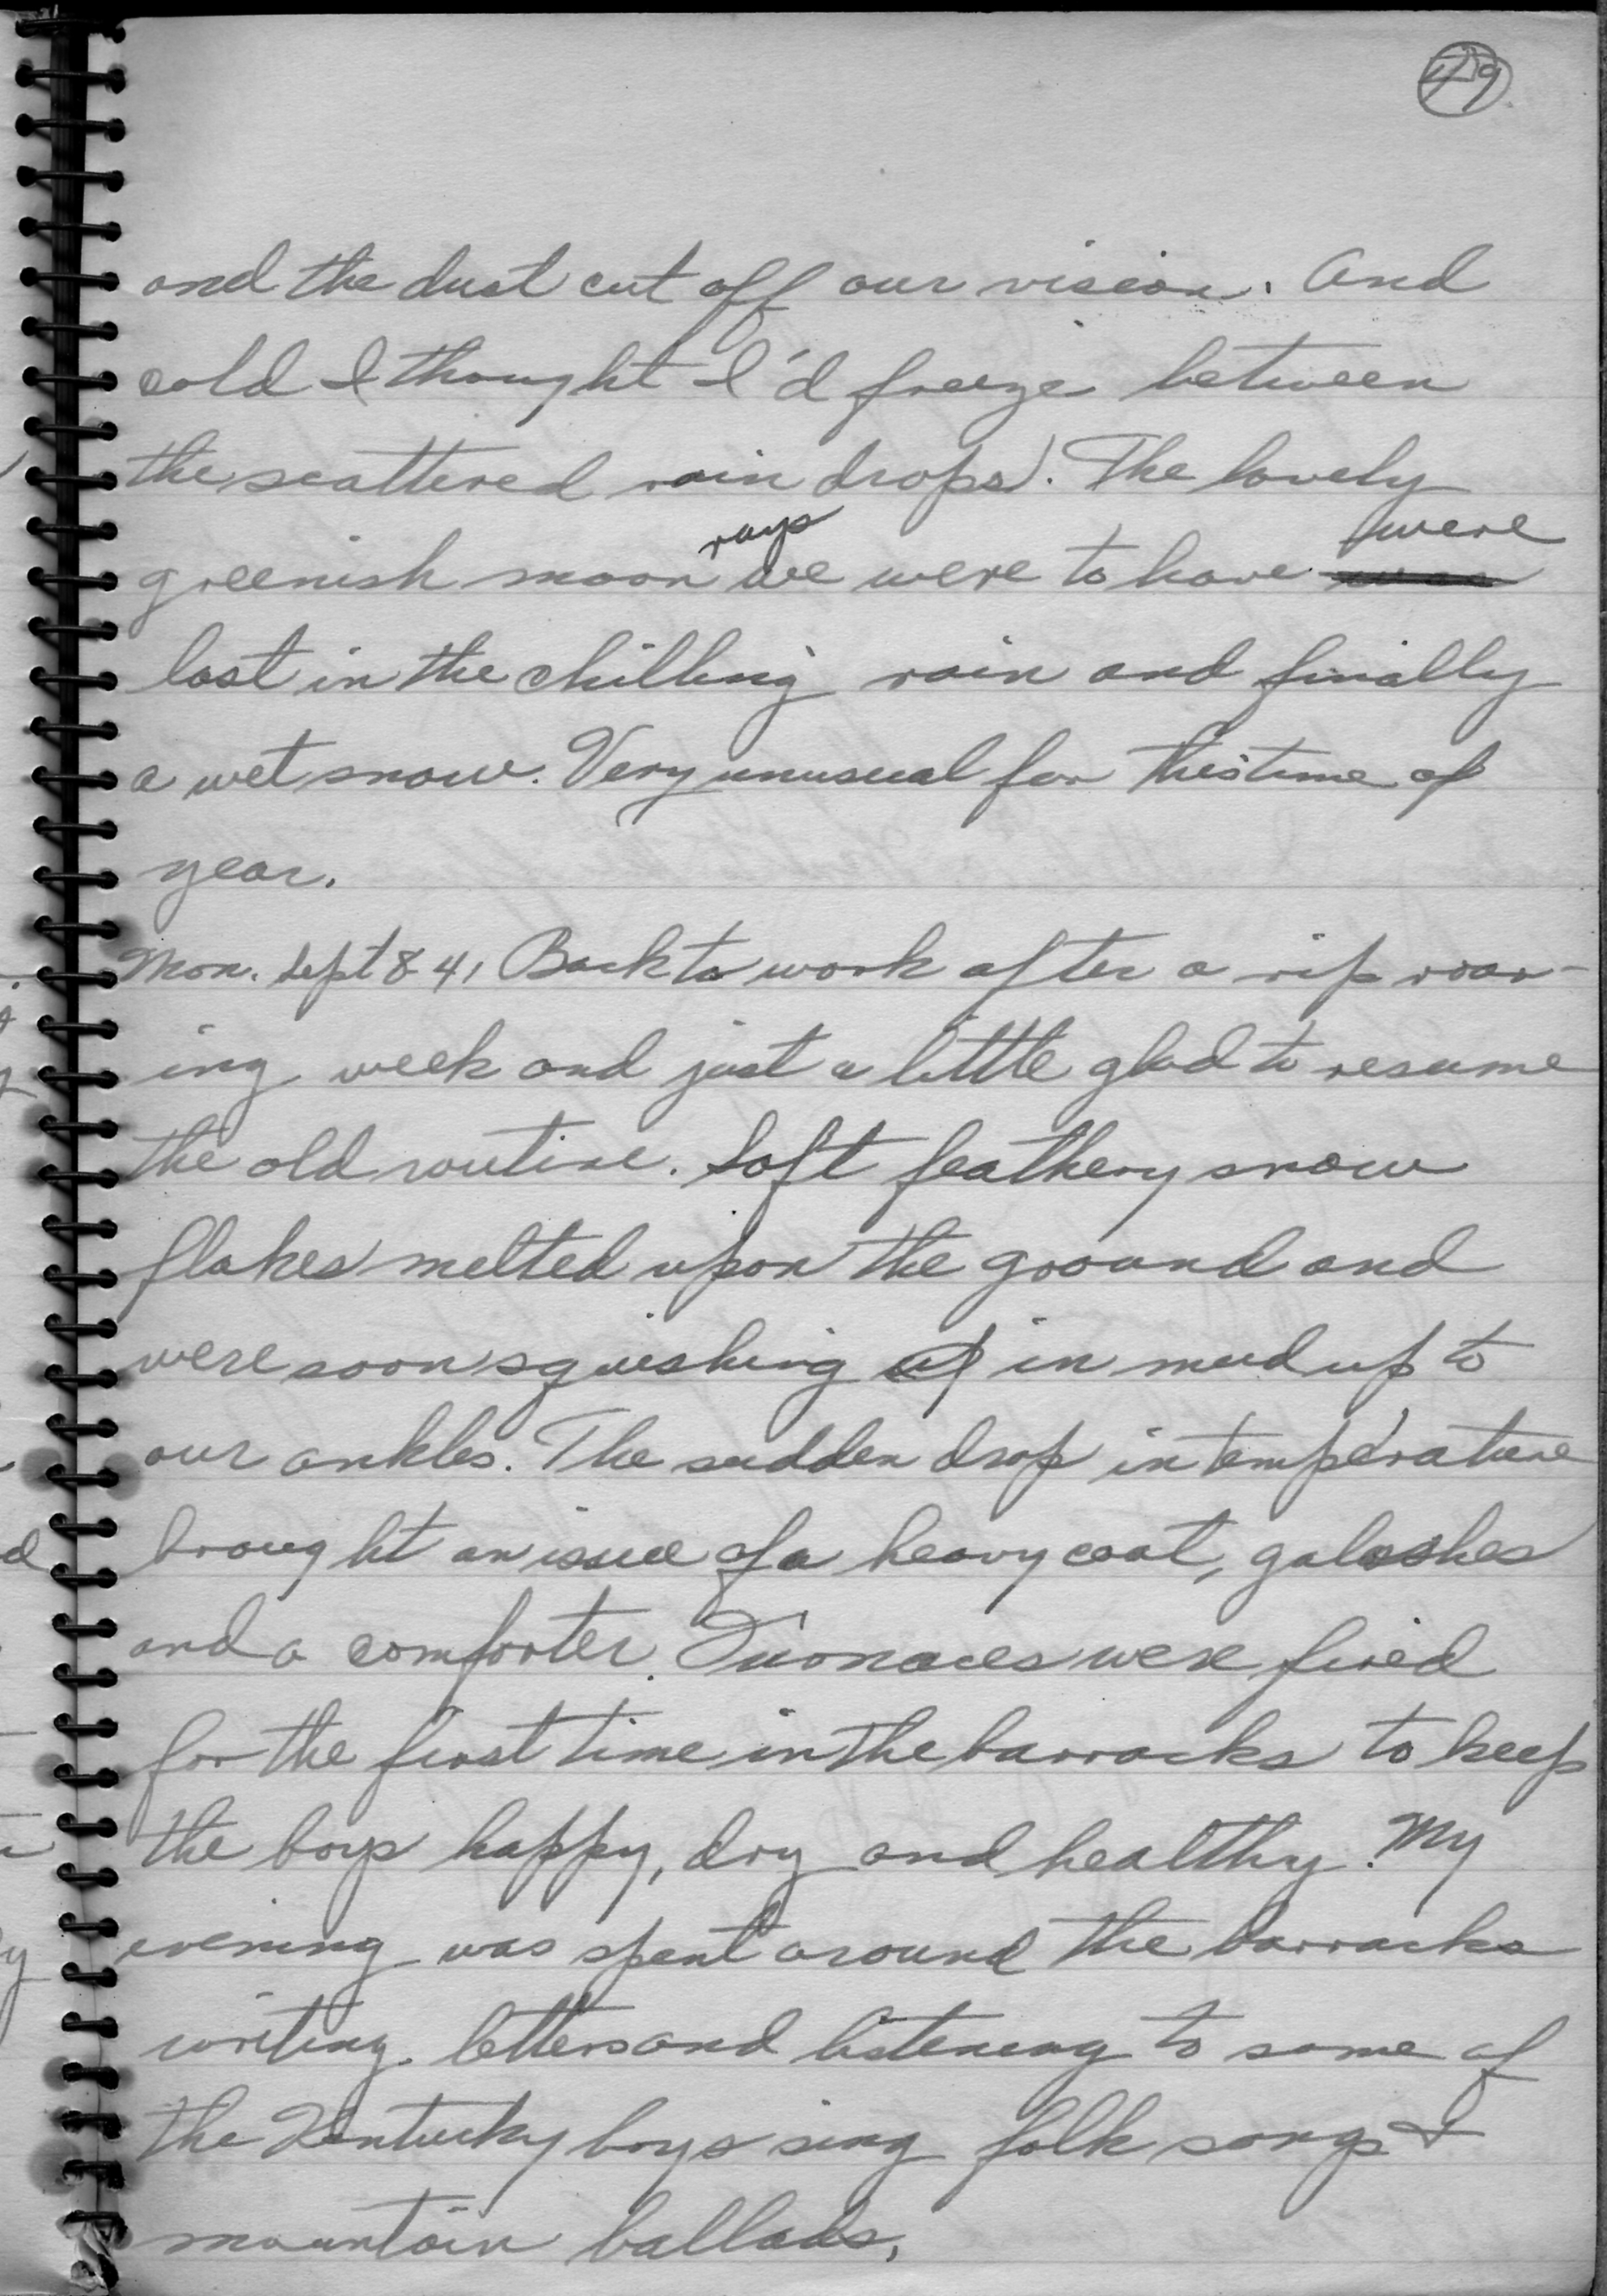 49
and the dust cut off our vision. And
cold I thought I'd freeze between
the scattered rain drops. The lovely
greenish moon rays we were to have were
lost in the chilling rain and finally
a wet snow. Very unusual for this time of
year.
Mon. Sept 8-41 Back to work after a rip roar-
ing week and just a little glad to resume
the old routine. Soft feathery snow
flakes melted upon the ground and
were soon squishing in mud up to
our ankles. The sudden drop in temperature
brought an issue of a heavy coat, galoshes
and a comforter. Furnaces were fired
for the first time in the barracks to keep
the boys happy, dry and healthy. My
evening was spent around the barracks
writing letters and listening to some of
the Kentucky boys sing folk songs &
mountain ballads.